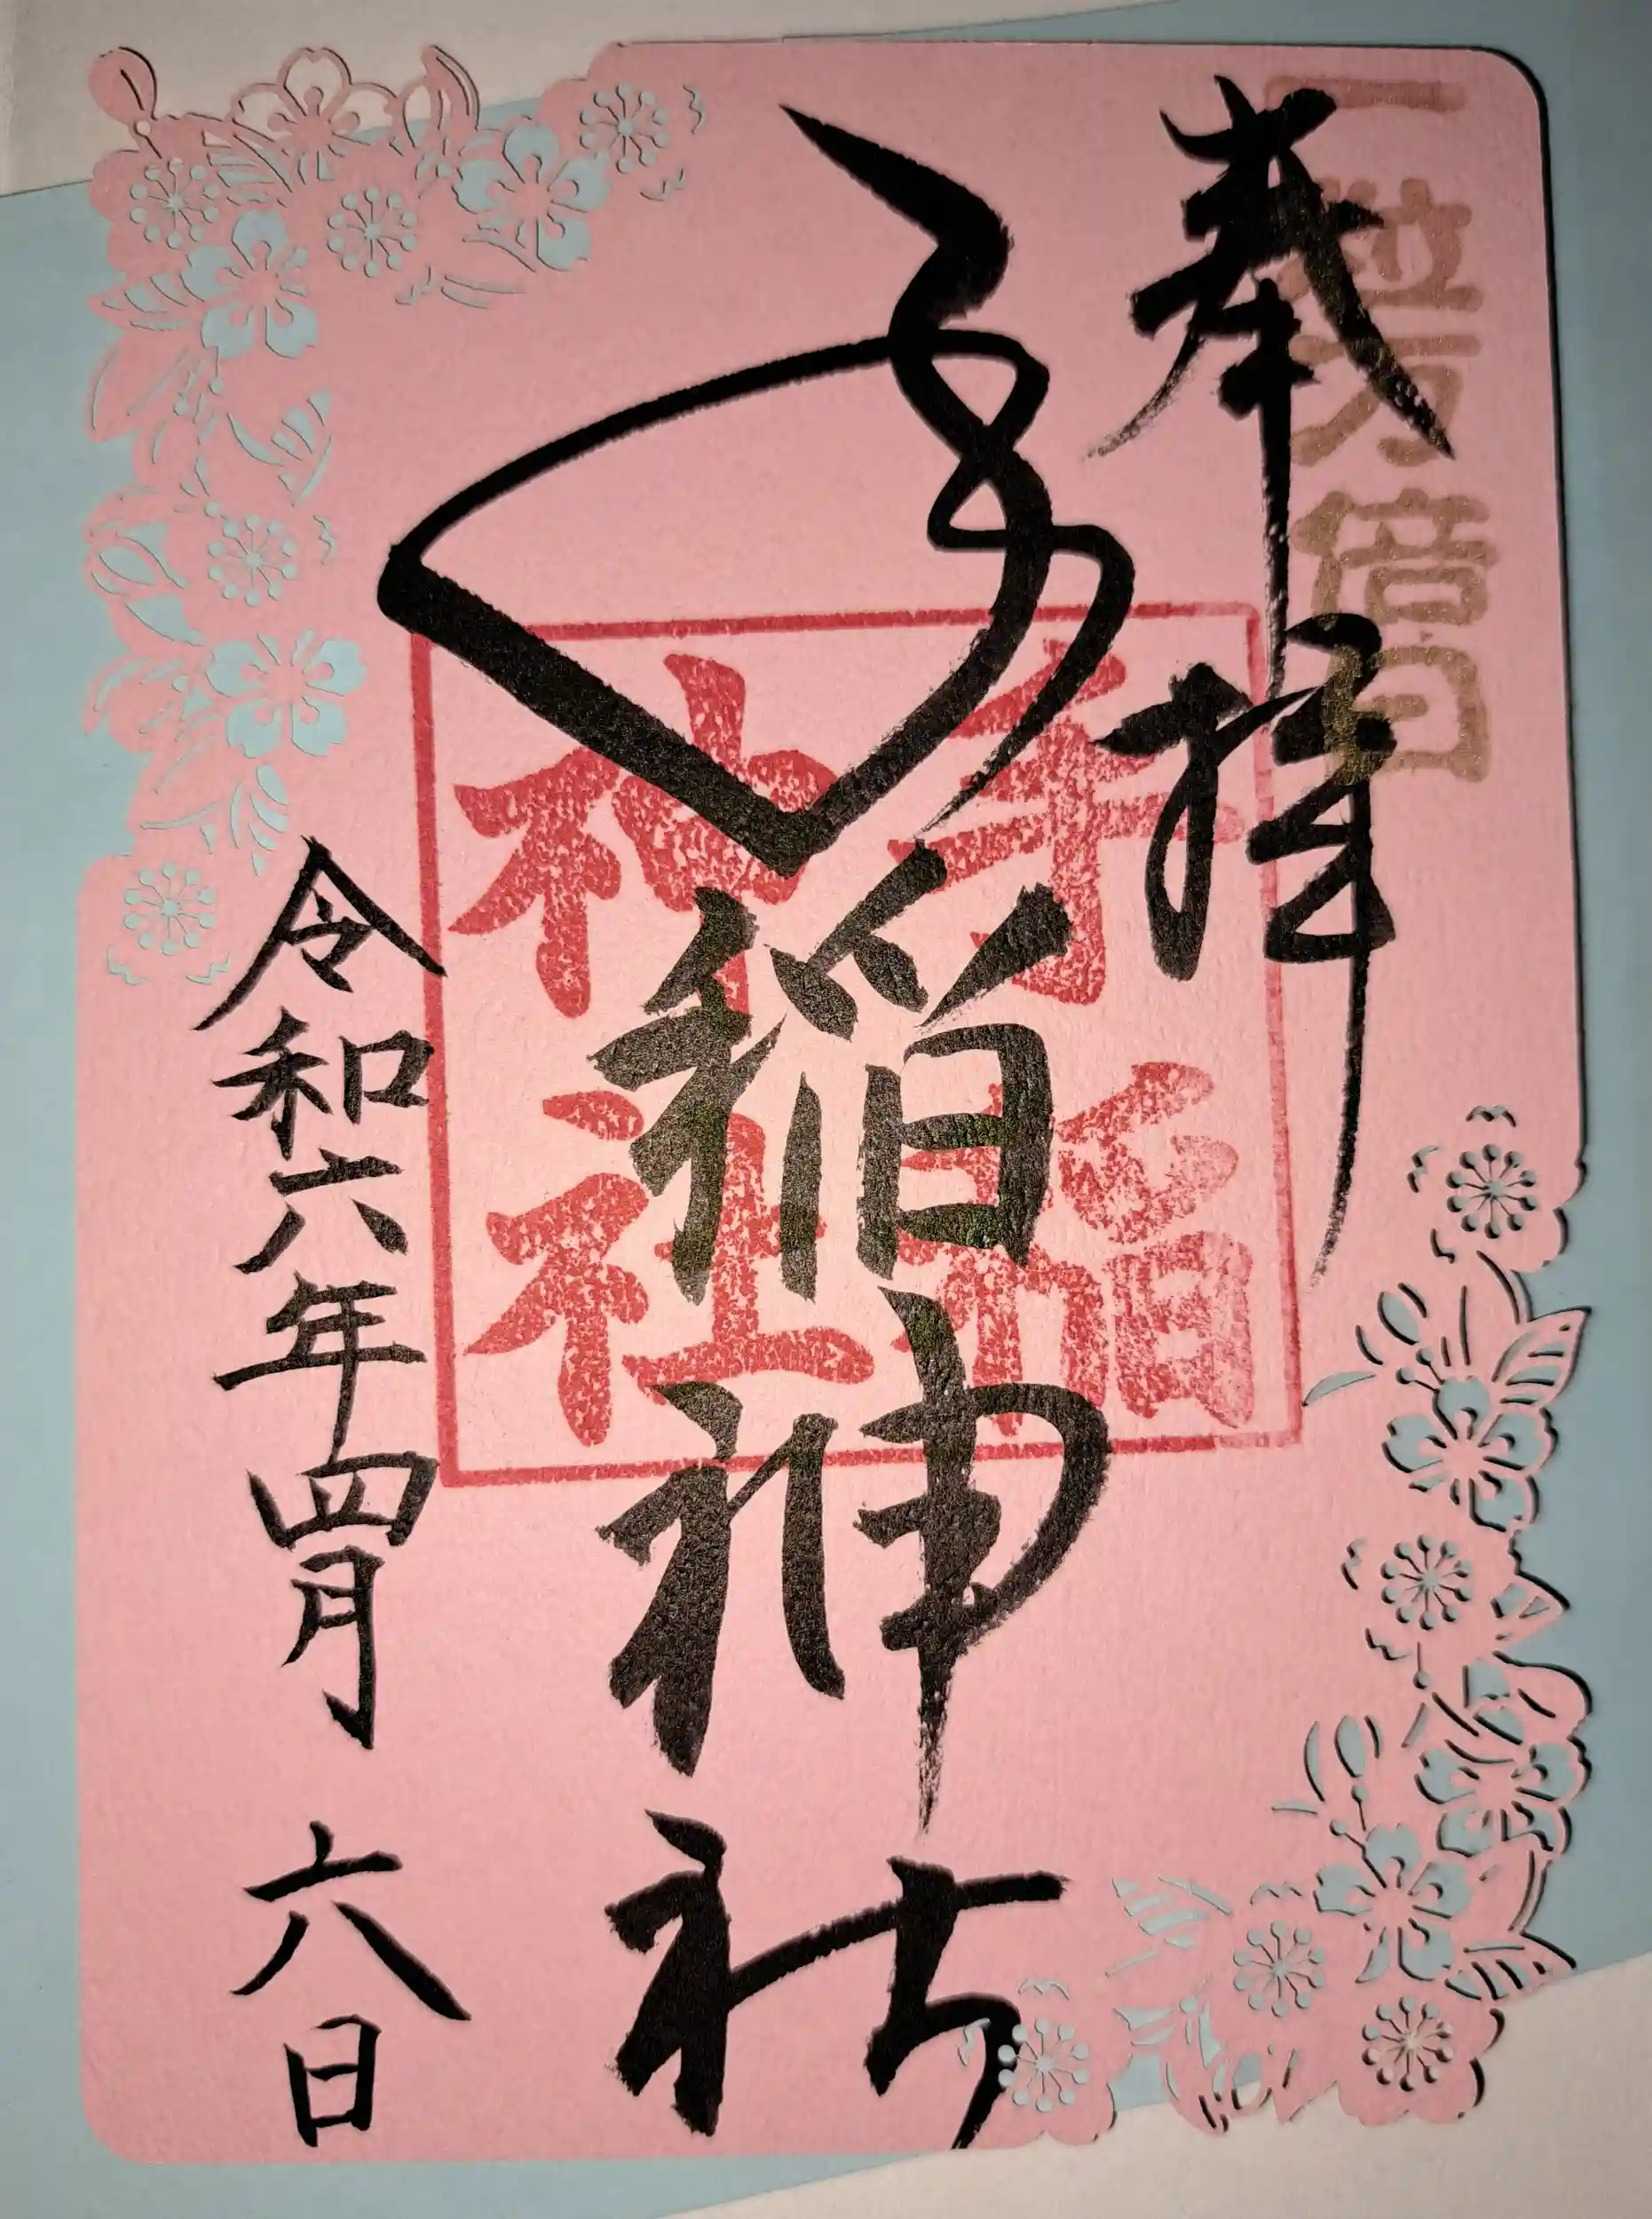 一粒万倍日
奉拝
手稲神社
手稲
神社
令和六年四月六日